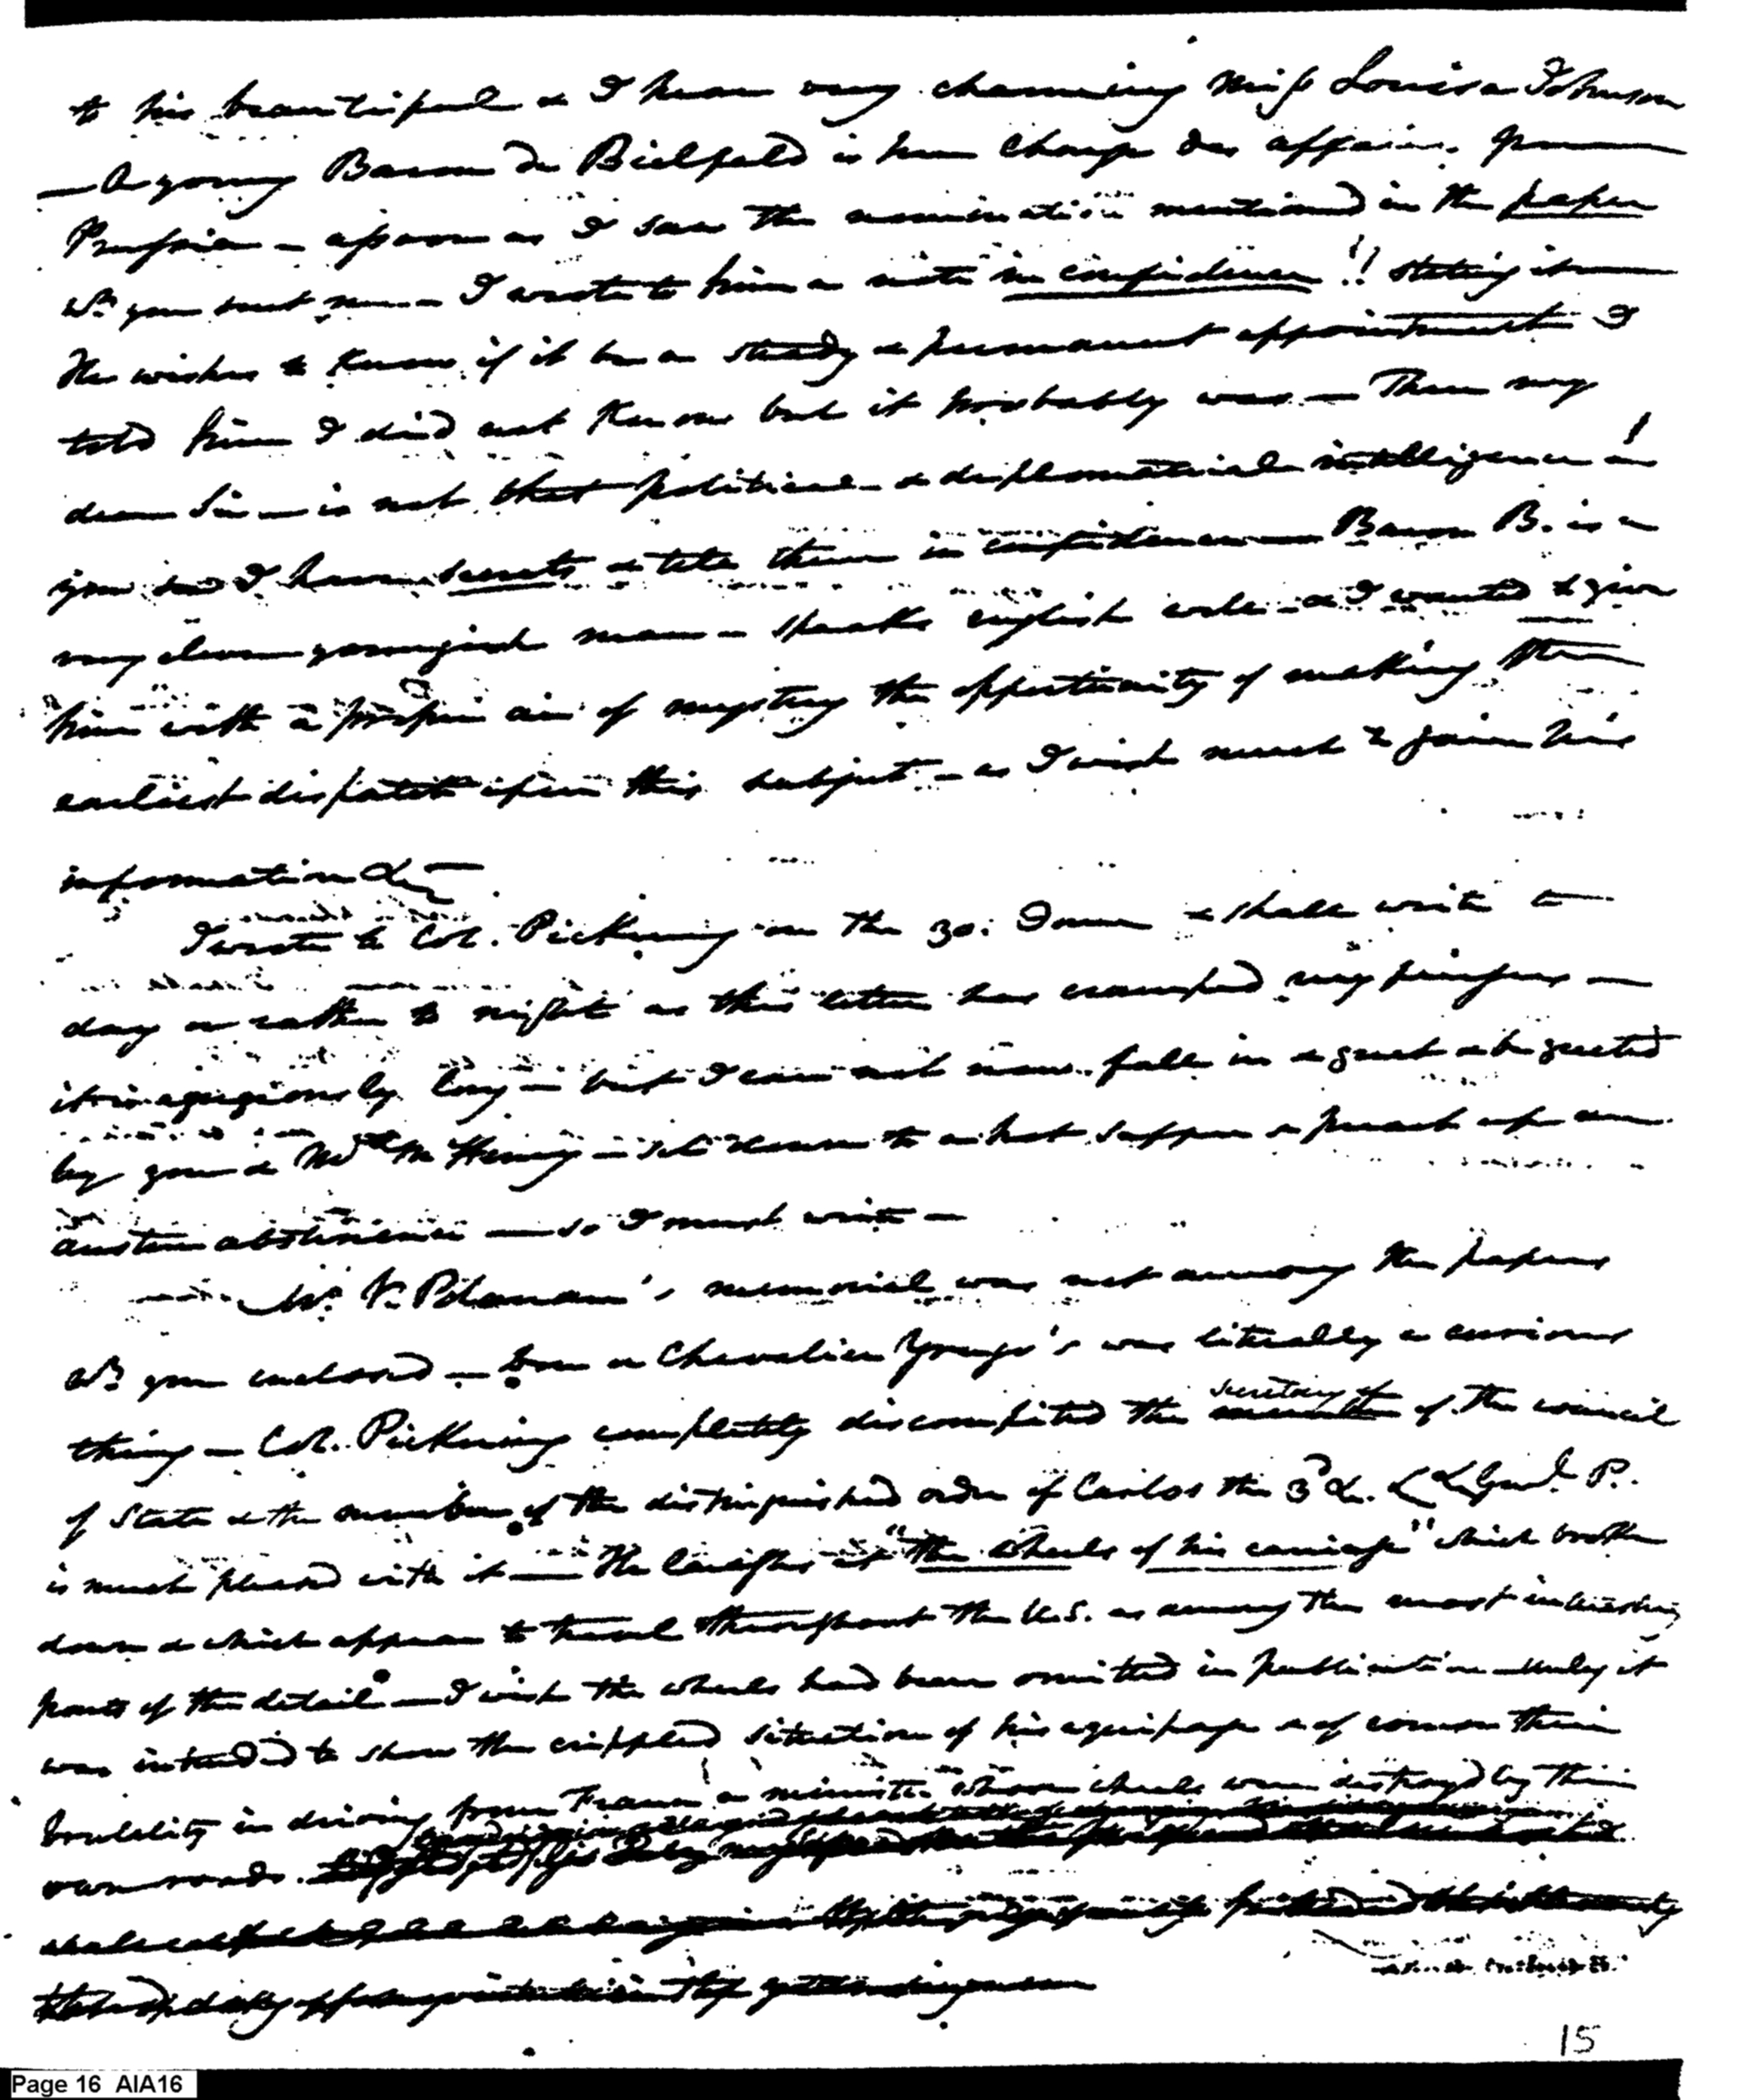 to his beautiful & I hear very charming Miss Louisa Johnson
— A young Baron de Bielfeld is here chargé des affaires from
Prussia — as soon as I saw the nomination mentioned in the paper
wh. you sent me — I wrote to him a note in confidence!! stating it
He wishes to know if it be a steady & permanent appointment I
told him I did not know but it probably was — There my
dear Sir — is not that political & diplomatical intelligence!
you see I have secrets & tell them in confidence — Baron B. is a
very clever youngish man — speaks english well — & I wanted to give
him with a proper air of mystery the opportunity of making the
earliest dispatch upon this subject — as I wish much to join his
information &c —
I wrote to Col. Pickering on the 30: June & shall write to
day or rather to night as this letter has cramped my fingers —
it is egregiously long — but I can not now fall in & greet & be greeted
by you & McHenry — sit down to a hot supper & preach up an
austere abstinence — so I must write —
Mr. V. Polanen's memorial was not among the papers
wh. you enclosed — Don or Chevalier Yrujo's was literally a curious
thing — Col. Pickering completely discomfited the secretary of the council
of State & the member of the distinguished order of Carlos the 3d &c. &c Genl. P.
is much pleased with it — He laughs at "the wheels of his carriage" which broke
down & which appear to travel throughout the U.S. as among the most interesting
parts of the detail — I wish the wheels had been omitted in publication — Unless it
was intended to show the crippled situation of his equipage & of course their
brutality in driving from France a minister whose wheels were destroyed by their
own roads.
15
Page 16 AIA16